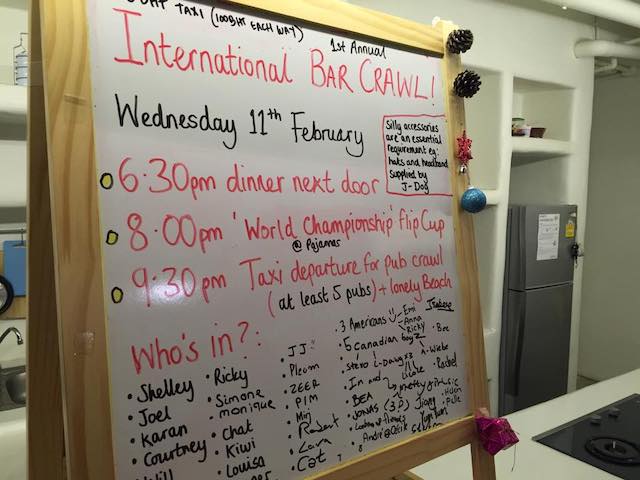 TAXI (100BHT EACH WAY)
1st Annual
International BAR CRAWL!
Wednesday 11th February
Silly accessories
are an essential
requirement eg:
hats and headband
Supplied by
J-Dog
6.30pm dinner next door
8.00pm 'World Championship' flip Cup
@ Pajamas
9.30pm Taxi departure for pub crawl
(at least 5 pubs) + lonely Beach
Who's in?:
• Shelley
• Joel
• Karan
• Courtney
• Ricky
• Simone
• monique
• Chat
• Kiwi
• Louisa
• JJ
• ZEER
• PIM
• Robert
• Lara
• Cat
• 3 Americans
Emi
Anna
Ricky
• 5 Canadian boyz
• In and
• BEA
• JONAS (3P)
• Rachel